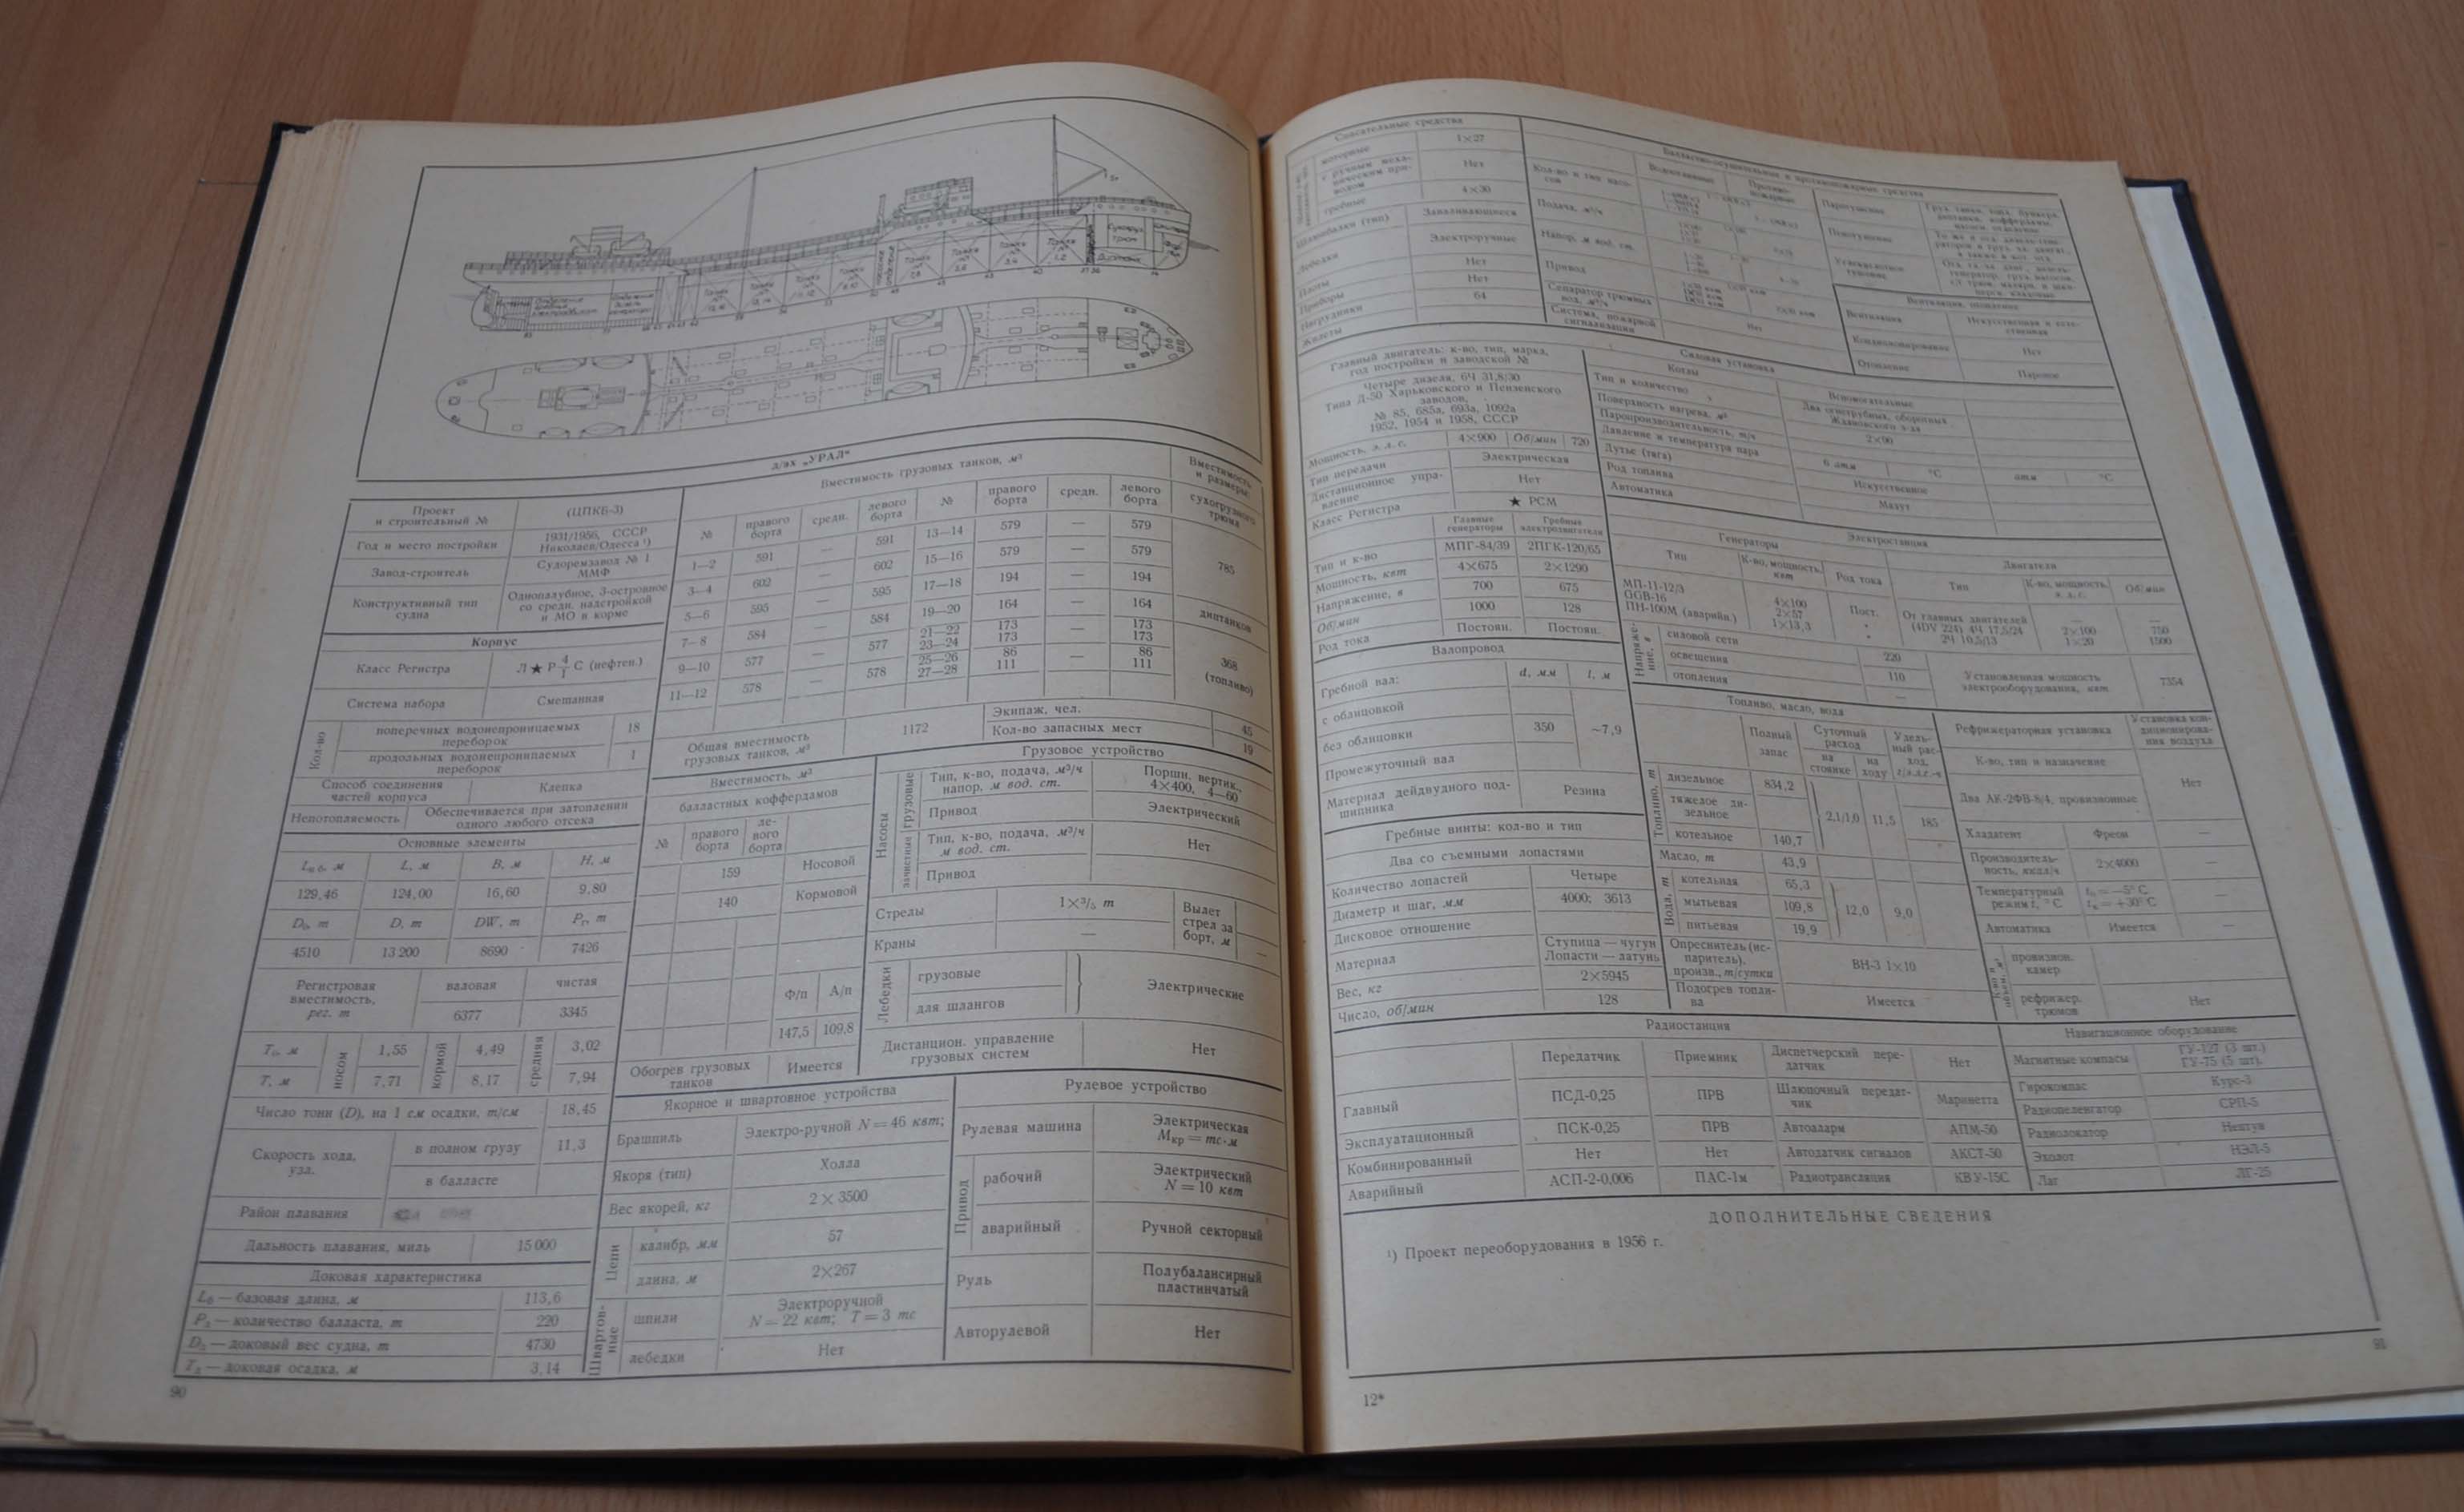 д/эх „УРАЛ“
Проект и строительный № (ЦПКБ-3)
Год и место постройки 1931/1956, СССР Николаев/Одесса ¹)
Завод-строитель Судоремзавод № 1 ММФ
Конструктивный тип судна Однопалубное, 3-островное со средн. надстройкой и МО в корме
Корпус
Класс Регистра Л ★ Р 4/1 С (нефтен.)
Система набора Смешанная
Кол-во поперечных водонепроницаемых переборок 18
продольных водонепроницаемых переборок 1
Способ соединения частей корпуса Клепка
Непотопляемость Обеспечивается при затоплении одного любого отсека
Основные элементы
L, м B, м H, м
129,46 124,00 16,60 9,80
D, т DW, т
4510 13 200 8690 7426
Регистровая вместимость, рег. т валовая чистая
6377 3345
носом 1,55 кормой 4,49 средняя 3,02
T, м 7,71 8,17 7,94
Число тонн (D), на 1 см осадки, т/см 18,45
Скорость хода, узл. в полном грузу 11,3
в балласте
Район плавания
Дальность плавания, миль 15 000
Доковая характеристика
— базовая длина, м 113,6
— количество балласта, т 220
— доковый вес судна, т 4730
— доковая осадка, м 3,14
90
Вместимость грузовых танков, м³
№ правого борта средн. левого борта № правого борта средн. левого борта
1—2 591 — 591 13—14 579 — 579
3—4 602 — 602 15—16 579 — 579
5—6 595 — 595 17—18 194 — 194
7—8 584 — 584 19—20 164 — 164
9—10 577 — 577 21—22 173 173
23—24 173 — 173
11—12 578 — 578 25—26 86 86
27—28 111 — 111
Вместимость и размеры сухогрузного трюма
785
диптанков
368
(топливо)
Общая вместимость грузовых танков, м³ 1172
Экипаж, чел. 45
Кол-во запасных мест 19
Вместимость, м³
балластных коффердамов
№ правого борта левого борта
159 Носовой
140 Кормовой
Ф/п А/п
147,5 109,8
Обогрев грузовых танков Имеется
Грузовое устройство
Насосы грузовые Тип, к-во, подача, м³/ч напор, м вод. ст. Поршн. вертик., 4×400, 4—60
Привод Электрический
зачистные Тип, к-во, подача, м³/ч м вод. ст. Нет
Привод
Стрелы 1×³/₅ т Вылет стрел за борт, м
Краны — —
Лебедки грузовые Электрические
для шлангов
Дистанцион. управление грузовых систем Нет
Якорное и швартовное устройства
Брашпиль Электро-ручной N = 46 квт;
Якоря (тип) Холла
Вес якорей, кг 2 × 3500
Цепи калибр, мм 57
длина, м 2×267
Швартовные шпили Электроручной N = 22 квт; T = 3 тс
лебедки Нет
Рулевое устройство
Рулевая машина Электрическая Mкр = тс·м
Привод рабочий Электрический N = 10 квт
аварийный Ручной секторный
Руль Полубалансирный пластинчатый
Авторулевой Нет
Спасательные средства
моторные 1×27
с ручным механическим приводом Нет
гребные 4×30
Шлюпбалки (тип) Заваливающиеся
Лебедки Электроручные
Плоты Нет
Приборы Нет
Нагрудники 64
Жилеты
Балластно-осушительные и противопожарные средства
Кол-во и тип насосов
Подача, м³/ч
Напор, м вод. ст.
Привод
Сепаратор трюмных вод, м³/ч
Система пожарной сигнализации Нет
Паротушение
Пенотушение
Вентиляция
Кондиционирование Нет
Отопление Паровое
Главный двигатель: к-во, тип, марка, год постройки и заводской №
Четыре дизеля, 6Ч 31,8/30
Типа Д-50 Харьковского и Пензенского заводов,
№ 85, 685а, 693а, 1092а
1952, 1954 и 1958, СССР
Мощность, э. л. с. 4×900 Об/мин 720
Тип передачи Электрическая
Дистанционное управление Нет
Класс Регистра ★ РСМ
Главные генераторы Гребные электродвигатели
Тип и к-во МПГ-84/39 2ПГК-120/65
Мощность, квт 4×675 2×1290
Напряжение, в 700 675
Об/мин 1000 128
Род тока Постоян. Постоян.
Силовая установка
Котлы
Тип и количество Вспомогательные
Два огнетрубных, оборотных Ждановского з-да
Поверхность нагрева, м² 2×90
Паропроизводительность, т/ч
Давление и температура пара 6 атм °С атм °С
Дутье (тяга) Искусственное
Род топлива Мазут
Автоматика
Электростанция
Генераторы Двигатели
Тип К-во, мощность, квт Род тока Тип К-во, мощность, э. л. с. Об/мин
МП-11-12/3 4×100 Пост. От главных двигателей — —
GGB-16 2×57 (4DV 224) 4Ч 17,5/24 2×100 750
ПН-100М (аварийн.) 1×13,3 2Ч 10,5/13 1×20 1500
Напряжение, в силовой сети 220
освещения 110
отопления —
Установленная мощность электрооборудования, квт 7354
Валопровод
Гребной вал: d, мм l, м
с облицовкой
без облицовки 350 ~7,9
Промежуточный вал
Материал дейдвудного подшипника Резина
Гребные винты: кол-во и тип
Два со съемными лопастями
Количество лопастей Четыре
Диаметр и шаг, мм 4000; 3613
Дисковое отношение
Материал Ступица — чугун Лопасти — латунь
Вес, кг 2×5945
Число, об/мин 128
Топливо, масло, вода
Полный запас Суточный расход на стоянке на ходу Удельный расход,
Топливо, т дизельное 834,2
тяжелое дизельное 2,1/1,0 11,5 185
котельное 140,7
Масло, т 43,9
Вода, т котельная 65,3
мытьевая 109,8 12,0 9,0
питьевая 19,9
Опреснитель (испаритель), произв., т/сутки ВН-3 1×10
Подогрев топлива Имеется
Рефрижераторная установка Установка кондиционирования воздуха
К-во, тип и назначение
Два АК-2ФВ-8/4, провизионные Нет
Хладагент Фреон —
Производительность, ккал/ч 2×4000 —
Температурный режим t, °С = —5° С = +30° С —
Автоматика Имеется —
провизион. камер
рефрижер. трюмов Нет
Радиостанция
Передатчик Приемник Диспетчерский передатчик Нет
Главный ПСД-0,25 ПРВ Шлюпочный передатчик Маринетта
Эксплуатационный ПСК-0,25 ПРВ Автоаларм АПМ-50
Комбинированный Нет Нет Автодатчик сигналов АКСТ-50
Аварийный АСП-2-0,006 ПАС-1м Радиотрансляция КВУ-15С
Навигационное оборудование
Магнитные компасы ГУ-127 (3 шт.) ГУ-75 (5 шт.)
Гирокомпас Курс-3
Радиопеленгатор СРП-5
Радиолокатор Нептун
Эхолот НЭЛ-5
Лаг ЛГ-25
ДОПОЛНИТЕЛЬНЫЕ СВЕДЕНИЯ
¹) Проект переоборудования в 1956 г.
12*
91